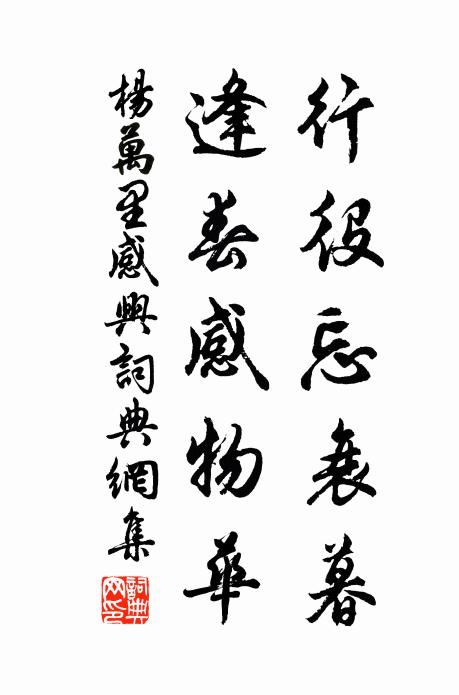 行役忘衰暮
逢春感物華
楊萬里感興詞典網集
詞典網印